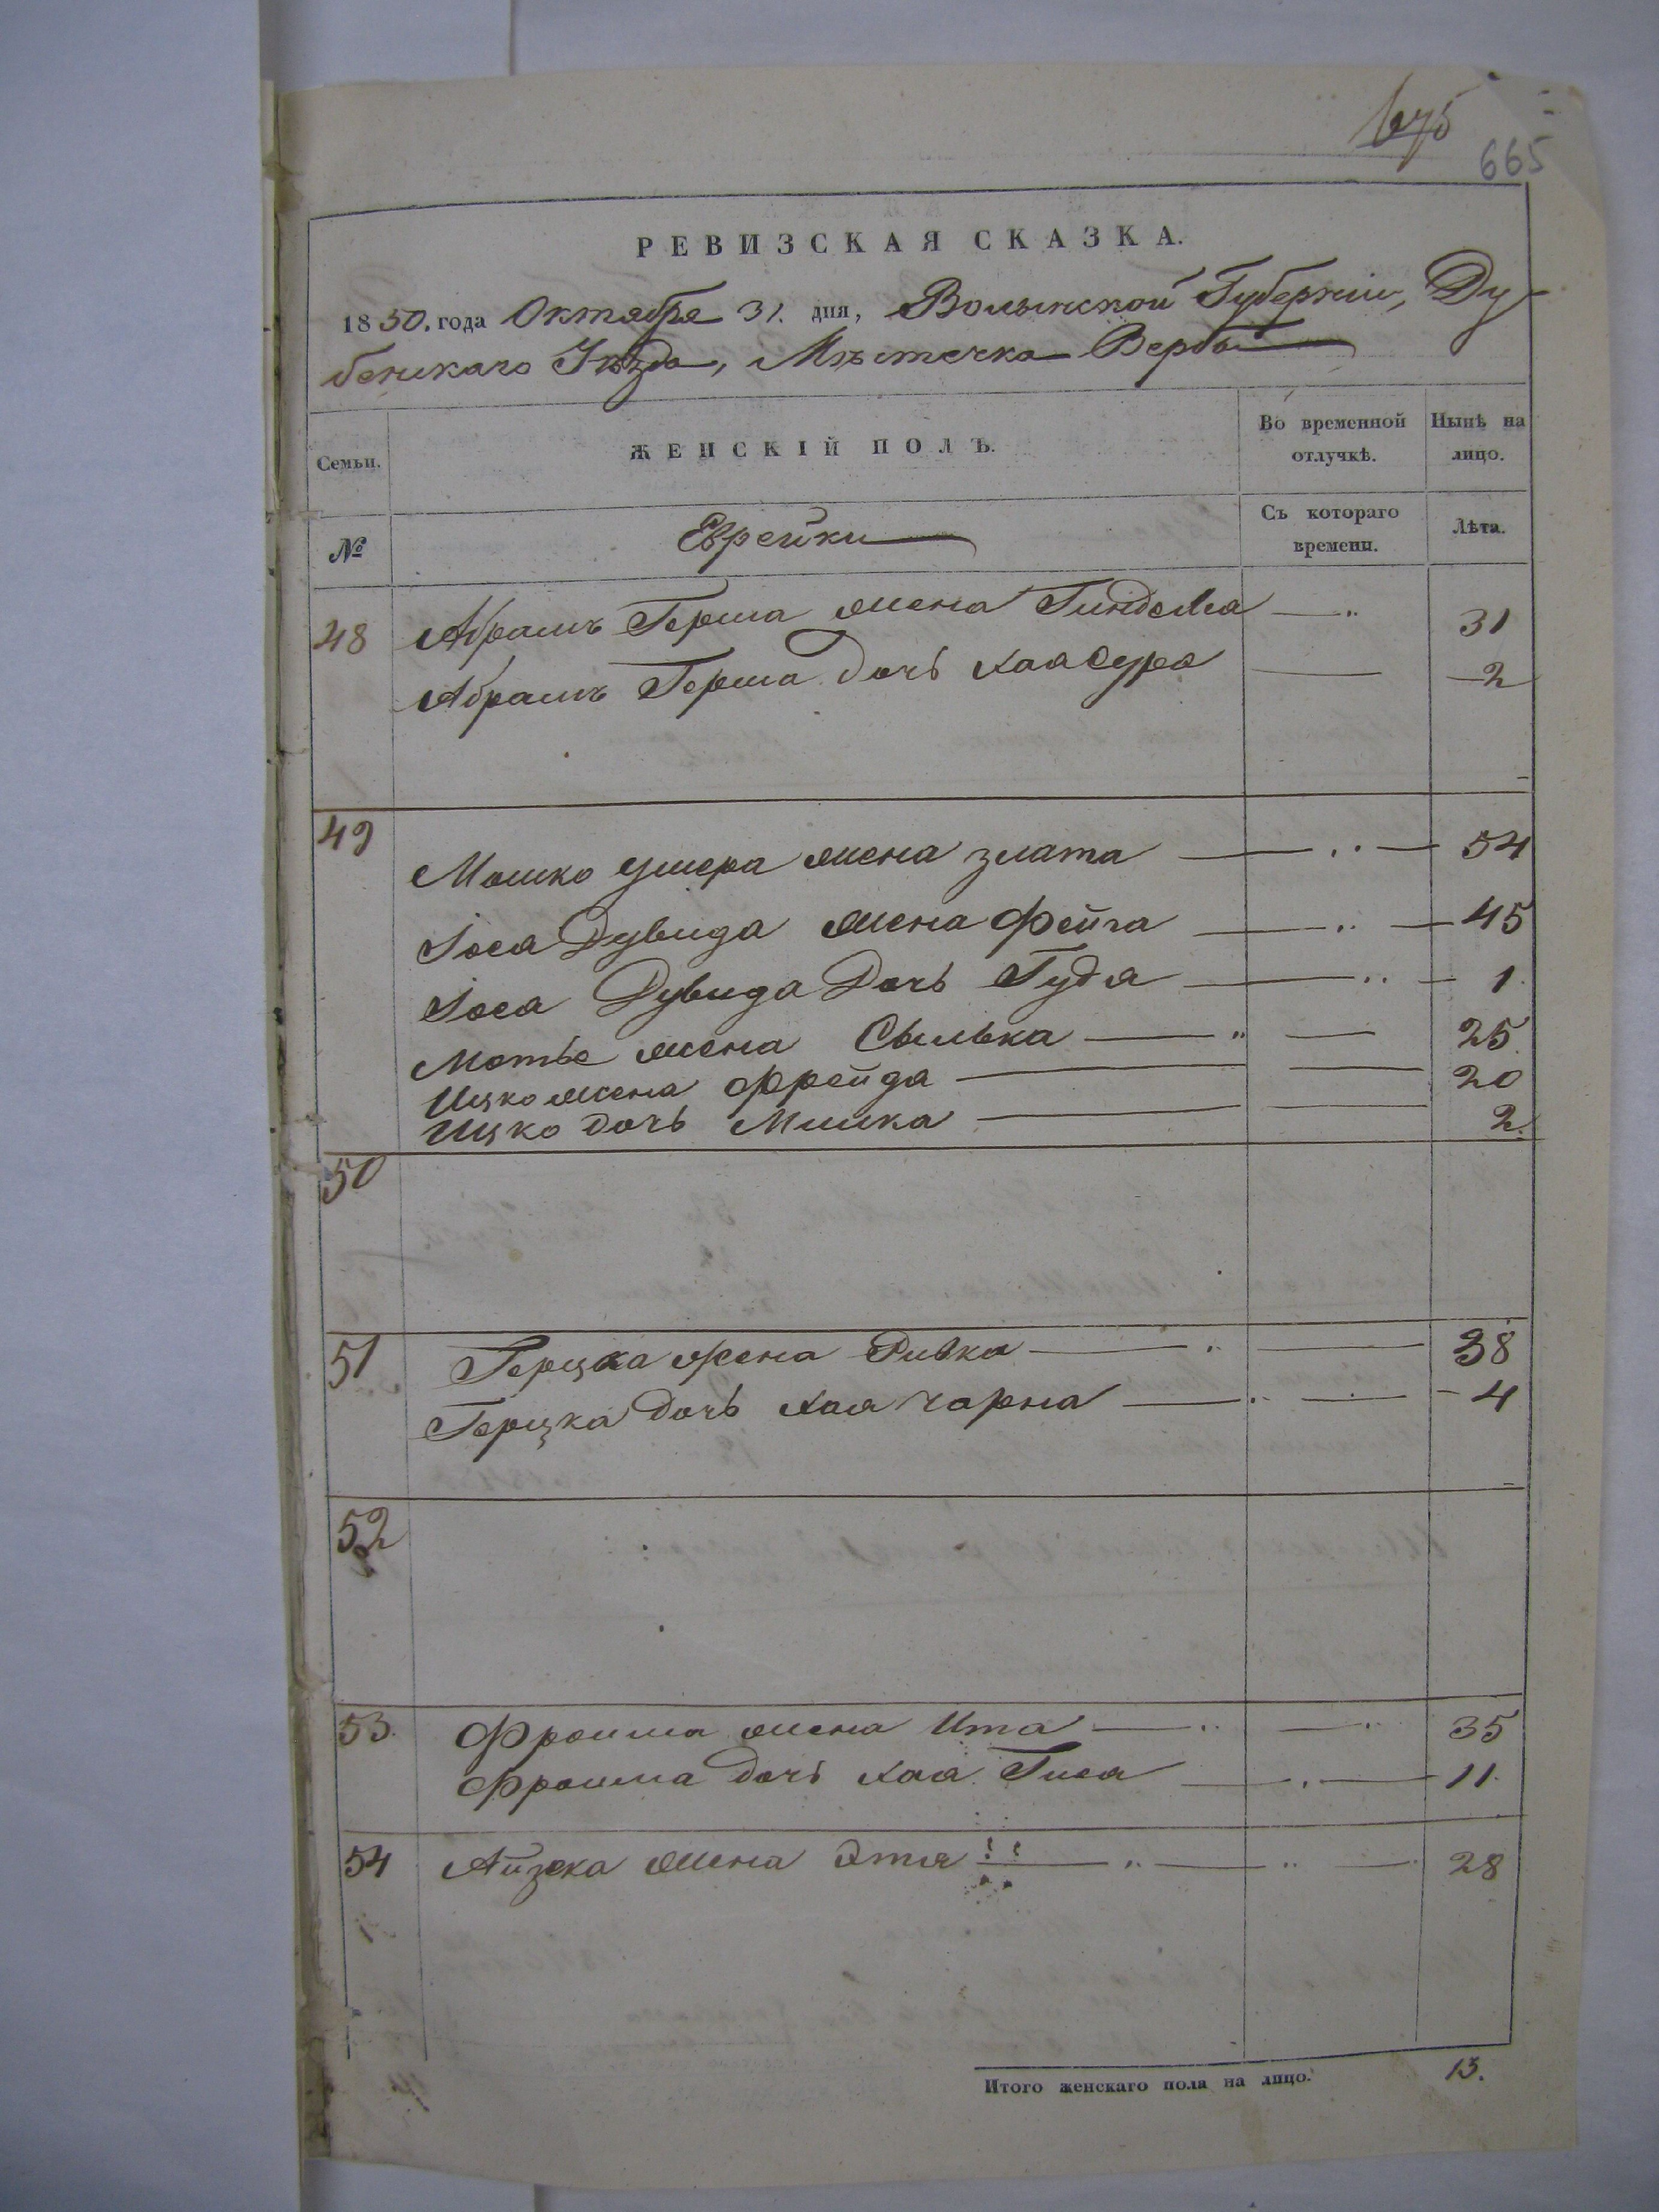 675
665
РЕВИЗСКАЯ СКАЗКА.
1850. года Октября 31. дня, Волынской Губернии, Ду
бенскаго Уѣзда, Мѣстечка Вербы
Семьи.
ЖЕНСКІЙ ПОЛЪ.
Во временной отлучкѣ.
Нынѣ на лицо.
№
Еврейки
Съ котораго времени.
Лѣта.
48 Абрамъ Герша жена Гиндела 31
Абрамъ Герша дочь Хаа Сура 2
49 Мошко Ушера жена Злата 54
Іоса Дувида жена Фейга 45
Іоса Дувида Дочь Гудя 1.
Мотье жена Сылька 25.
Ицко жена Фрейда 20
Ицко дочь Мишка 2.
50
51 Герцка жена Ривка 38
Герцка дочь Хая Чарна 4
52
53. Фроима жена Ита 35
Фроима дочь Хаа Гиса 11.
54 Айзека жена Этя 28
Итого женскаго пола на лицо. 13.